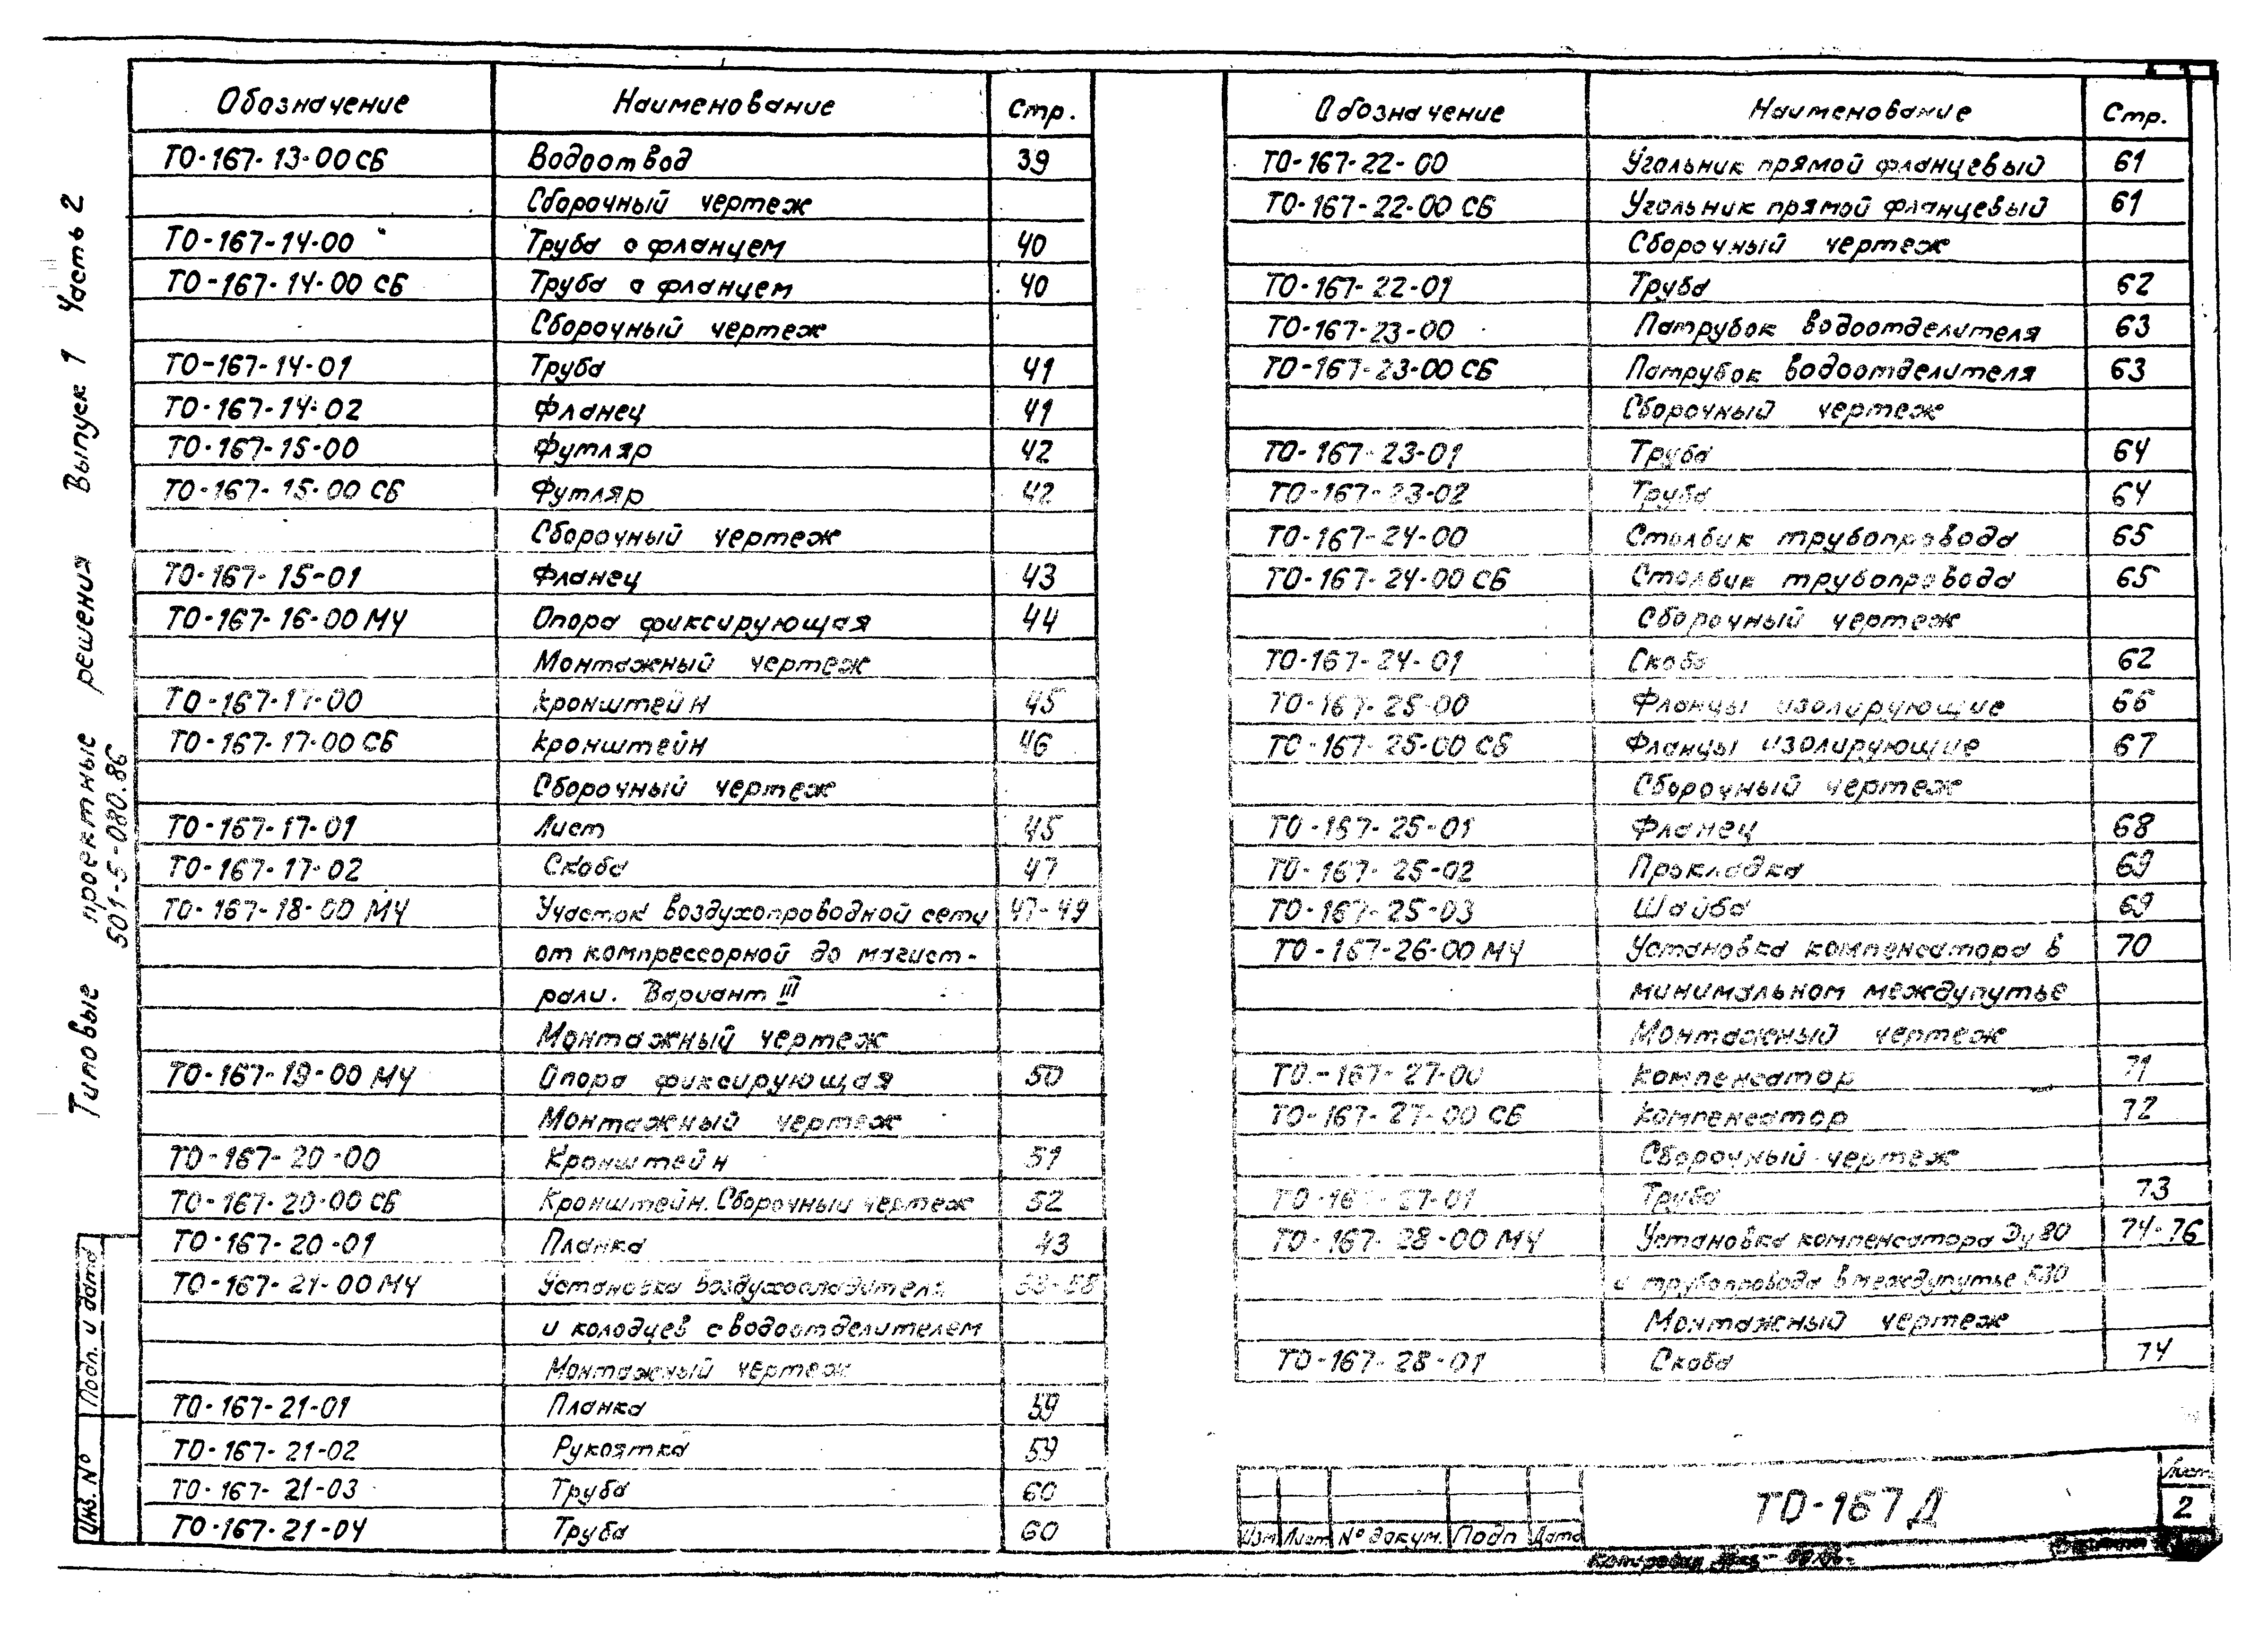 Типовые проектные решения Выпуск 1 Часть 2
501-5-080.86
Обозначение Наименование Стр.
ТО-167-13-00 СБ Водоотвод 39
Сборочный чертеж
ТО-167-14-00 Труба с фланцем 40
ТО-167-14-00 СБ Труба с фланцем 40
Сборочный чертеж
ТО-167-14-01 Труба 41
ТО-167-14-02 Фланец 41
ТО-167-15-00 Футляр 42
ТО-167-15-00 СБ Футляр 42
Сборочный чертеж
ТО-167-15-01 Фланец 43
ТО-167-16-00 МЧ Опора фиксирующая 44
Монтажный чертеж
ТО-167-17-00 Кронштейн 45
ТО-167-17-00 СБ Кронштейн 46
Сборочный чертеж
ТО-167-17-01 Лист 45
ТО-167-17-02 Скоба 47
ТО-167-18-00 МЧ Участок воздухопроводной сети 47-49
от компрессорной до магист-
рали. Вариант III
Монтажный чертеж
ТО-167-19-00 МЧ Опора фиксирующая 50
Монтажный чертеж
ТО-167-20-00 Кронштейн 51
ТО-167-20-00 СБ Кронштейн. Сборочный чертеж 52
ТО-167-20-01 Планка 43
ТО-167-21-00 МЧ Установка воздухоохладителя
и колодцев с водоотделителем
Монтажный чертеж
ТО-167-21-01 Планка 59
ТО-167-21-02 Рукоятка 59
ТО-167-21-03 Труба 60
ТО-167-21-04 Труба 60
Обозначение Наименование Стр.
ТО-167-22-00 Угольник прямой фланцевый 61
ТО-167-22-00 СБ Угольник прямой фланцевый 61
Сборочный чертеж
ТО-167-22-01 Труба 62
ТО-167-23-00 Патрубок водоотделителя 63
ТО-167-23-00 СБ Патрубок водоотделителя 63
Сборочный чертеж
ТО-167-23-01 Труба 64
ТО-167-23-02 Труба 64
ТО-167-24-00 Столбик трубопровода 65
ТО-167-24-00 СБ Столбик трубопровода 65
Сборочный чертеж
ТО-167-24-01 Скоба 62
ТО-167-25-00 Фланцы изолирующие 66
ТО-167-25-00 СБ Фланцы изолирующие 67
Сборочный чертеж
ТО-167-25-01 Фланец 68
ТО-167-25-02 Прокладка 69
ТО-167-25-03 Шайба 69
ТО-167-26-00 МЧ Установка компенсатора в 70
минимальном междупутье
Монтажный чертеж
ТО-167-27-00 Компенсатор 71
ТО-167-27-00 СБ Компенсатор 72
Сборочный чертеж
ТО-167-27-01 Труба 73
ТО-167-28-00 МЧ Установка компенсатора Ду 80 74-76
и трубопровода в междупутье 530
Монтажный чертеж
ТО-167-28-01 Скоба 74
Инв. № Подп. и дата
Изм Лист № докум. Подп Дата
ТО-167 Д
Лист
2
Копировал
Формат